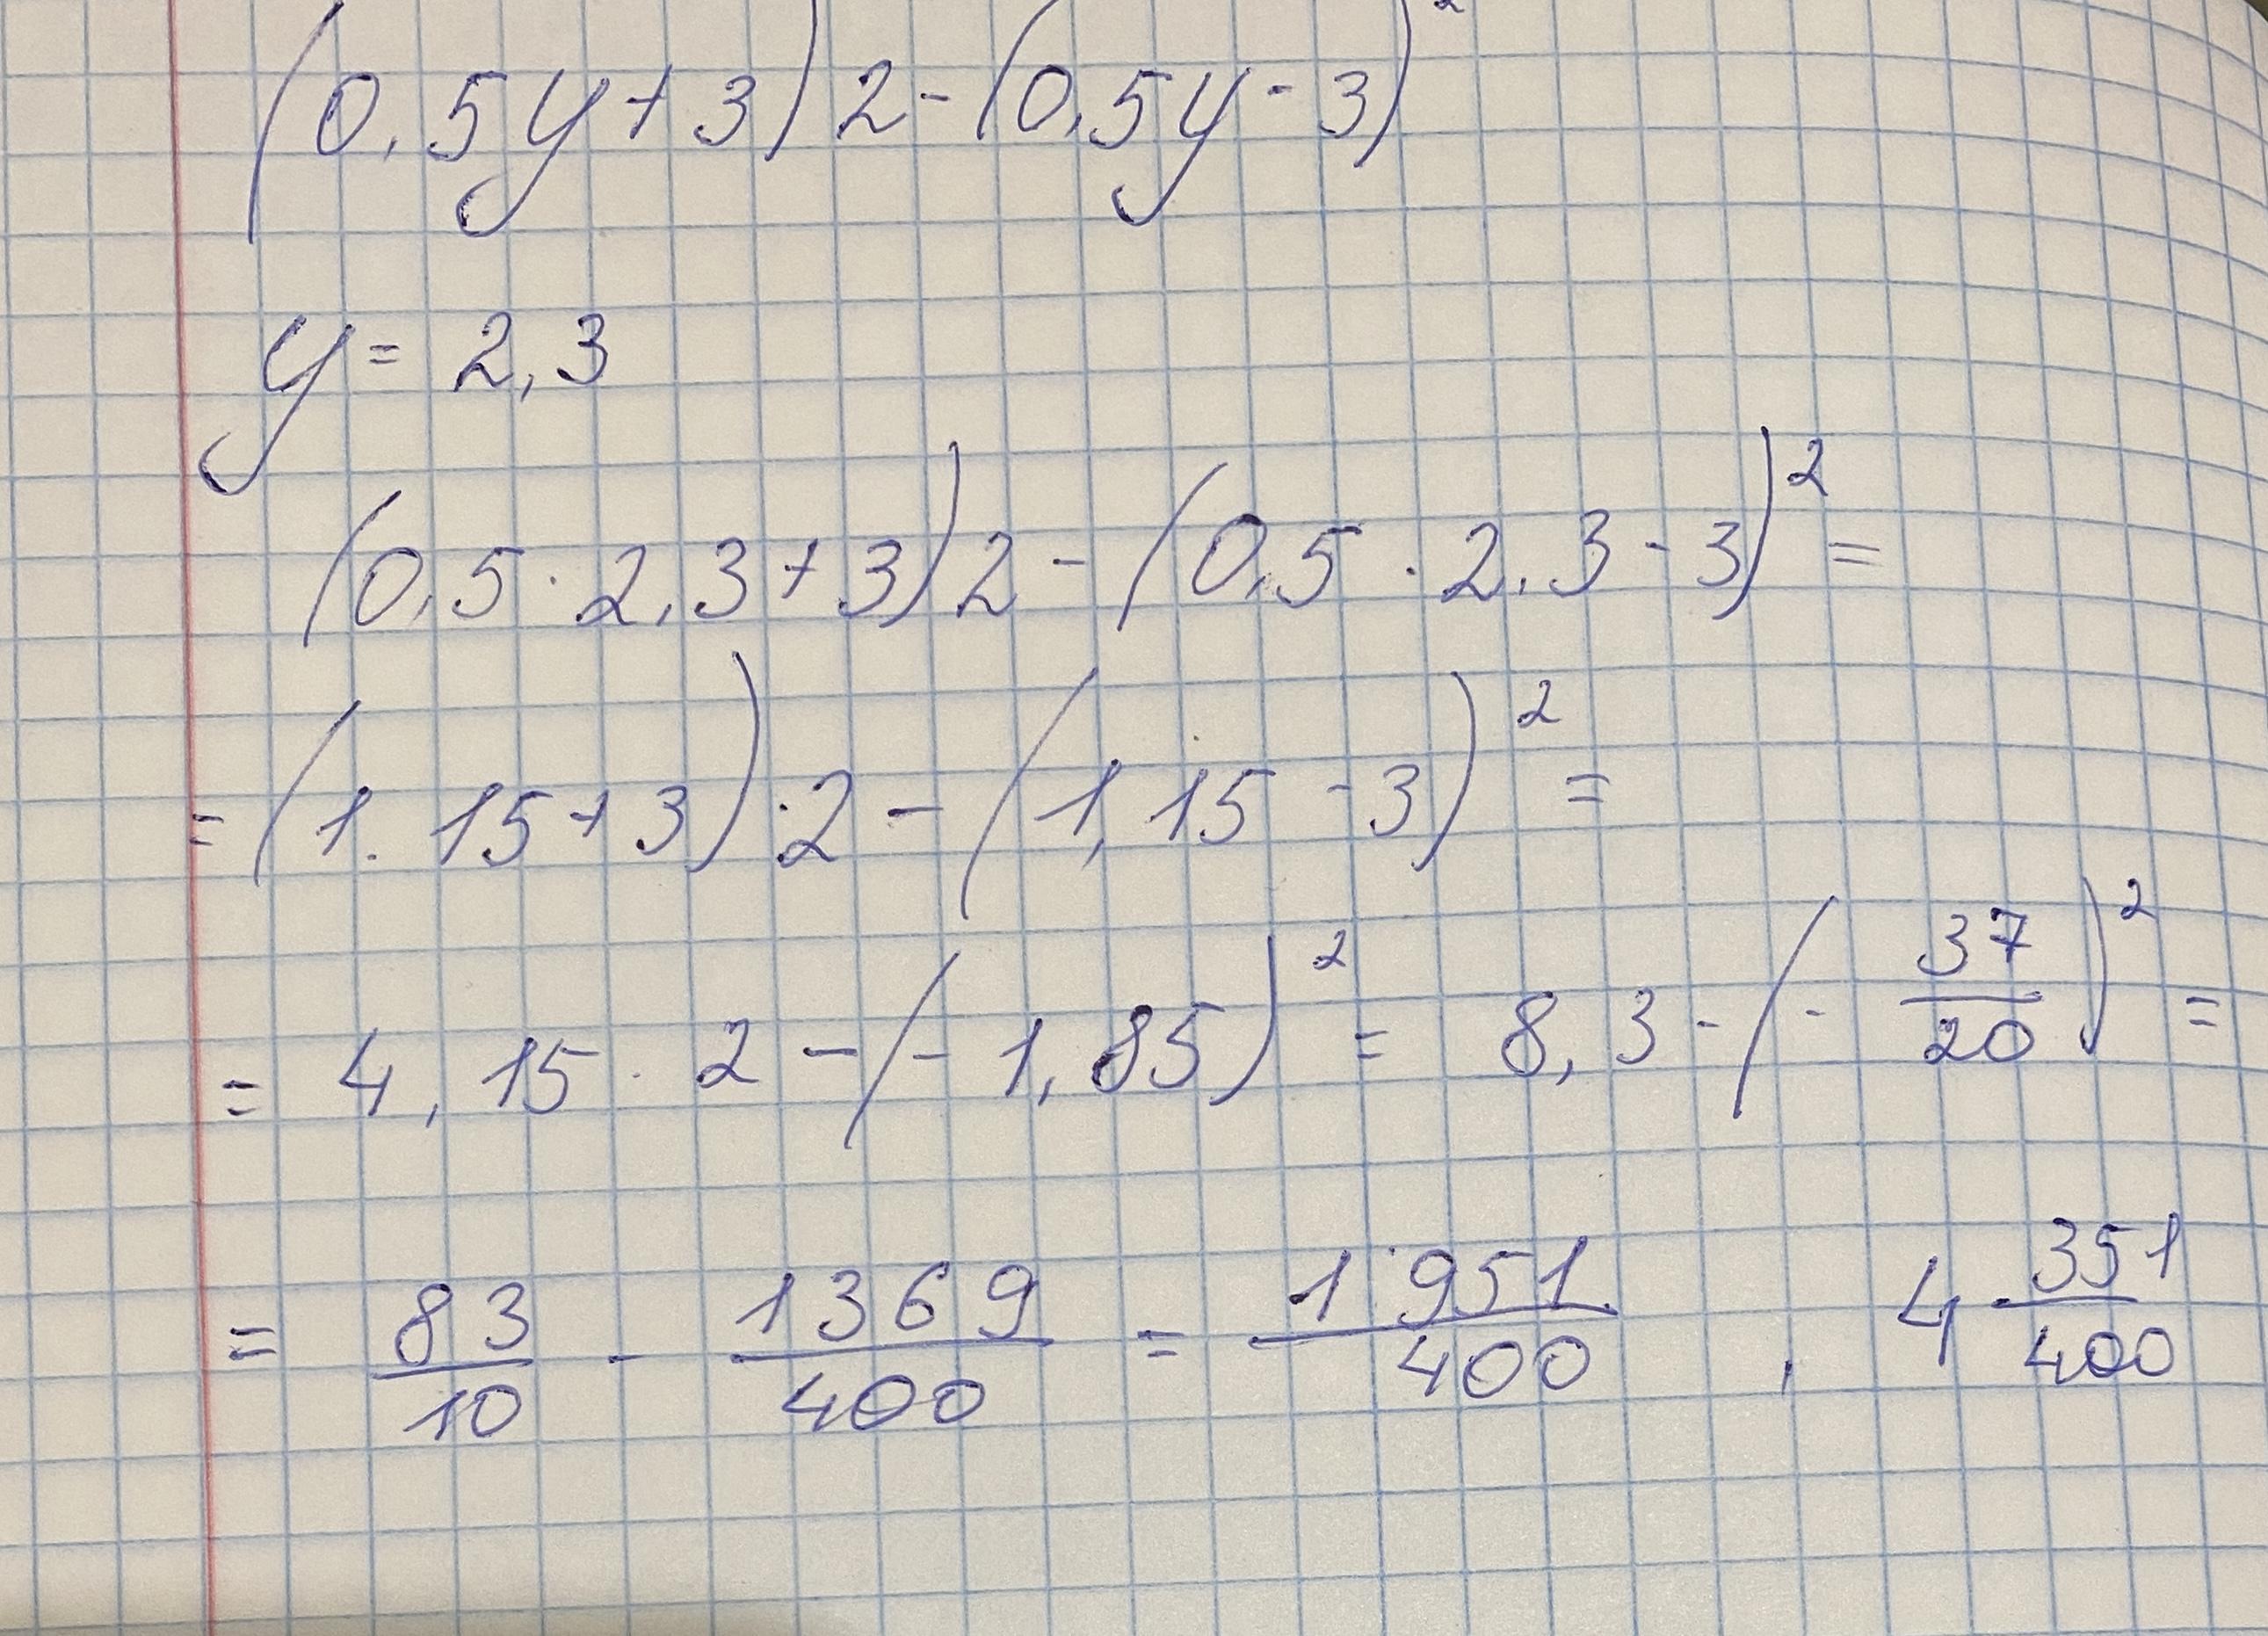 (0,5y+3)2-(0,5y-3)²
y = 2,3
(0,5·2,3+3)2-(0,5·2,3-3)²=
=(1.15+3)·2-(1,15-3)²=
=4,15·2-(-1,85)²=8,3-(-37/20)²=
=83/10-1369/400=1951/400, 4 351/400